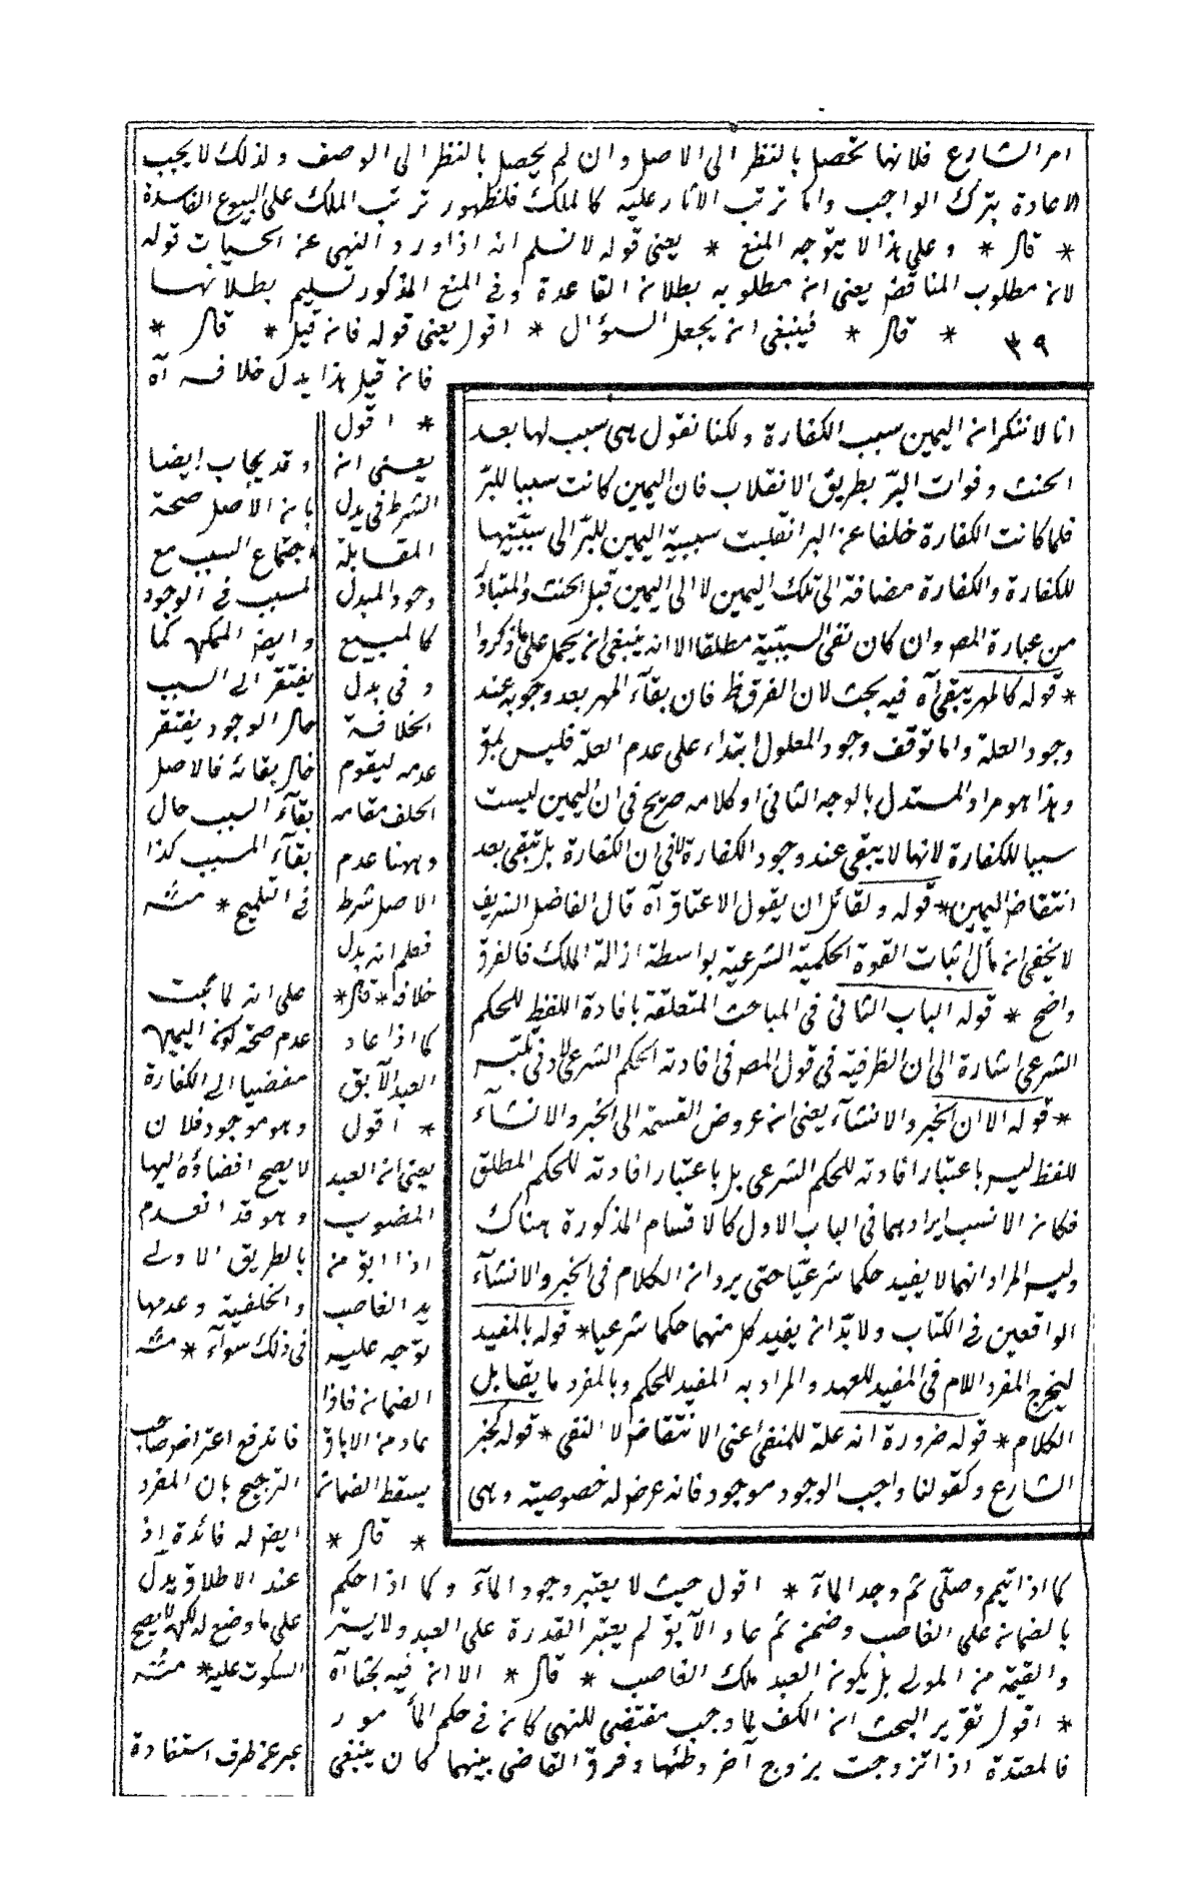 امر الشارع فلانها تحصل بالنظر الى الاصل وان لم يحصل بالنظر الى الوصف ولذلك لا يجب
الاعادة بترك الواجب واما ترتب الاثار عليه كالملك فلظهور ترتب الملك على البيوع الفاسدة
* قال * وعلى هذا لا يتوجه المنع * يعنى قوله لا نسلم انه اذا ورد النهى عن الحسيات قوله
لان مطلوب المناقض يعنى ان مطلوبه بطلان القاعدة وفى المنع المذكور تسليم بطلانها
٣٩ * قال * فينبغى ان يجعل السؤال * اقول يعنى قوله فان قيل * قال *
فان قيل هذا يدل خلافه آه
* اقول
يعنى ان
الشرط فى بدل
المقابلة
وجود المبدل
كالمبيع
وفى بدل
الخلافة
عدمه ليقوم
الخلف مقامه
وههنا عدم
الاصل شرط
فعلم انه بدل
خلافه * قال *
كما اذا عاد
العبد الآبق
* اقول
يعنى ان العبد
المغصوب
اذا ابق من
يد الغاصب
توجه عليه
الضمان فاذا
عاد من الاباق
يسقط الضمان
* قال *
كما اذا تيمم وصلى ثم وجد الماء * اقول حيث لا يعتبر وجود الماء وكما اذا حكم
بالضمان على الغاصب وضمن ثم عاد الآبق لم يعتبر القدرة على العبد ولا يسترد
والقيمة من المولى بل يكون العبد ملك الغاصب * قال * الا ان فيه بحثا آه
* اقول تقرير البحث ان الكف لما وجب مقتضى للنهى كان فى حكم المأمور
فالمعتدة اذا تزوجت بزوج آخر وطئها وفرق القاضى بينهما كان ينبغى
انا لا ننكر ان اليمين سبب الكفارة ولكنا نقول هى سبب لها بعد
الحنث وفوات البرّ بطريق الانقلاب فان اليمين كانت سببا للبرّ
فلما كانت الكفارة خلفا عن البر انقلبت سببية اليمين للبرّ الى سببيّتها
للكفارة والكفارة مضافة الى تلك اليمين لا الى اليمين قبل الحنث والمتبادر
من عبارة المص وان كان نفى السببيّة مطلقا الا انه ينبغى ان يحمل على ما ذكروا
* قوله كالمهر يبقى آه فيه بحث لان الفرق ظ فان بقاء المهر بعد وجوبه عند
وجود العلة واما توقف وجود المعلول ابتداء على عدم العلة فليس
وهذا هو مراد المستدل بالوجه الثانى او كلامه صريح فى ان اليمين ليست
سببا للكفارة لانها لا يبقى عند وجود الكفارة لا فى ان الكفارة بل تبقى بعد
انتقاض اليمين * قوله ولقائل ان يقول الاعتاق آه قال الفاضل الشريف
لا يخفى ان مآل اثبات القوة الحكمية الشرعية بواسطة ازالة الملك فالفرق
واضح * قوله الباب الثانى فى المباحث المتعلقة بافادة اللفظ للحكم
الشرعى اشارة الى ان الظرفية فى قول المص فى افادته الحكم الشرعى
* قوله الا ان الخبر والانشآء يعنى ان عروض القسمة الى الخبر والانشآء
للفظ ليس باعتبار افادته للحكم الشرعى بل باعتبار افادته للحكم المطلق
فكان الانسب ايرادهما فى الباب الاول كالاقسام المذكورة هناك
وليس المراد انهما لا يفيد حكما شرعيّا حتى يرد ان الكلام فى الخبر والانشآء
الواقعين فى الكتاب ولابدّ ان يفيد كل منهما حكما شرعيا * قوله بالمفيد
ليخرج المفرد اللام فى المفيد للعهد والمراد به المفيد للحكم وبالمفرد ما يقابل
الكلام * قوله ضرورة انه علة للمنفى اعنى الانتقاض لا النفى * قوله كخبر
الشارع وكقولنا واجب الوجود موجود فانه عرض له خصوصية وهى
وقد يجاب ايضا
بان الاصل صحة
اجتماع السبب مع
لمسبب فى الوجود
وايض الممكن كما
يفتقر الى السبب
حال الوجود يفتقر
حال بقائه فالاصل
بقآء السبب حال
بقآء المسبب كذا
فى التلميح * منه
على انه لما ثبت
عدم صحة كون اليمين
مفضيا الى الكفارة
وهو موجود فلان
لا يصح افضاؤه اليها
وهو قد انعدم
بالطريق الاولى
والخلفية وعدمها
فى ذلك سوآء * منه
فاندفع اعتراض صاحب
الترجيح بان المفرد
ايض له فائدة اذ
عند الاطلاق يدل
على ما وضع له لكن لا يصح
السكوت عليه * منه
عبر عن طرف استفادة